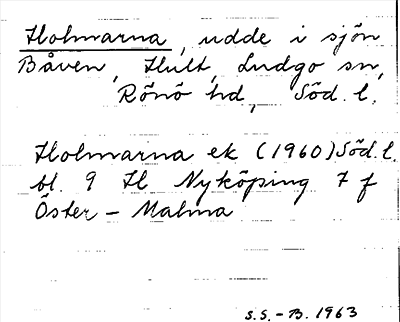 Holmarna, udde i sjön
Båven, Hult, Ludgo sn,
Rönö hd, Söd. l.
Holmarna ek (1960) Söd. l.
bl. 9 H Nyköping 7 f
Öster - Malma
S.S. - B. 1963